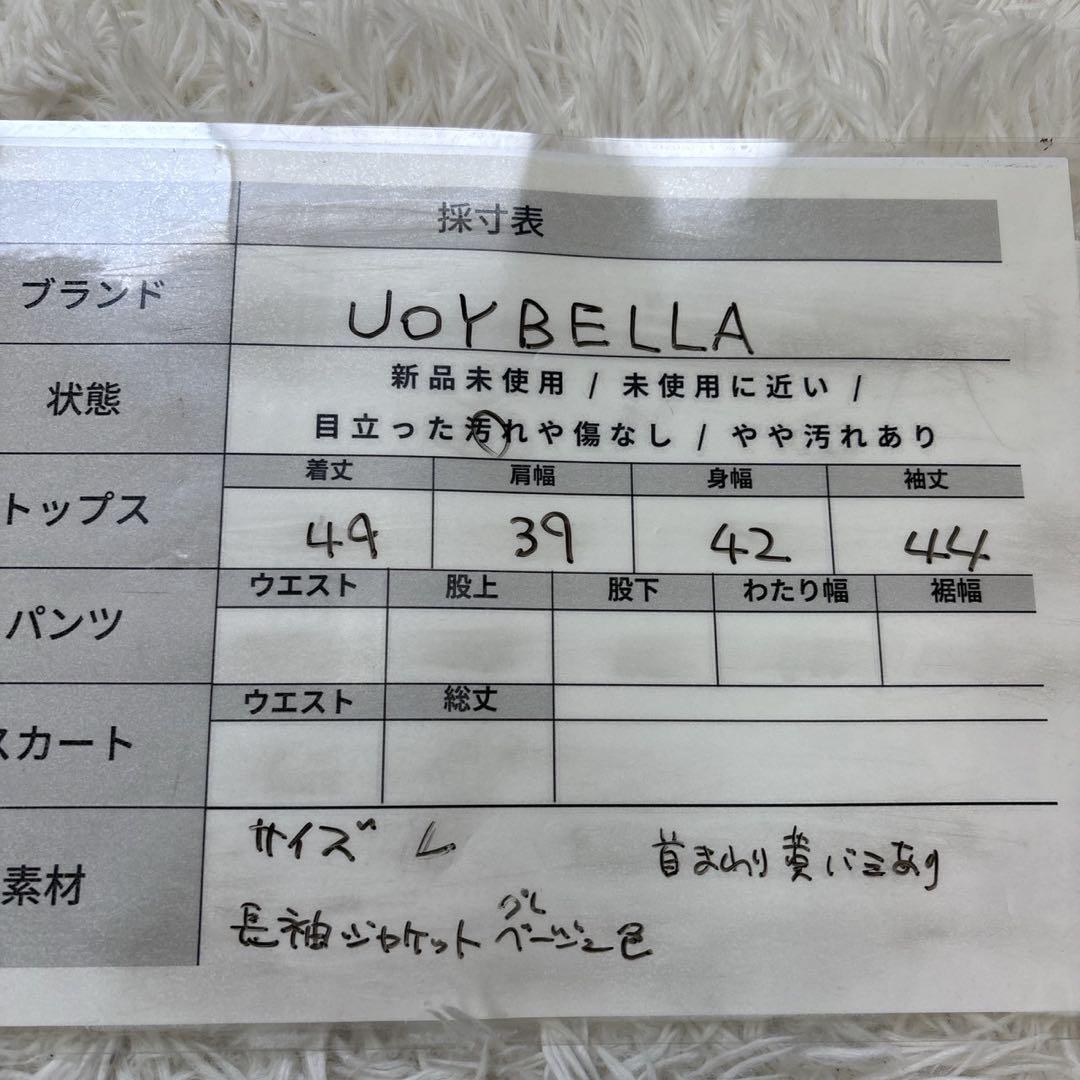 採寸表
ブランド UOYBELLA
状態 新品未使用 / 未使用に近い /
目立った汚れや傷なし / やや汚れあり
トップス 着丈 肩幅 身幅 袖丈
49 39 42 44
パンツ ウエスト 股上 股下 わたり幅 裾幅
スカート ウエスト 総丈
素材 サイズ L 首まわり黄バミあり
グレ
長袖ジャケット ベージュ色